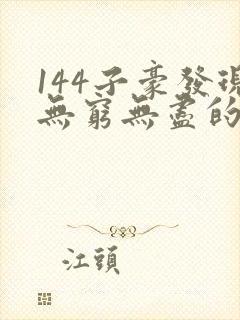 144子豪發現
無窮無盡的
江頭